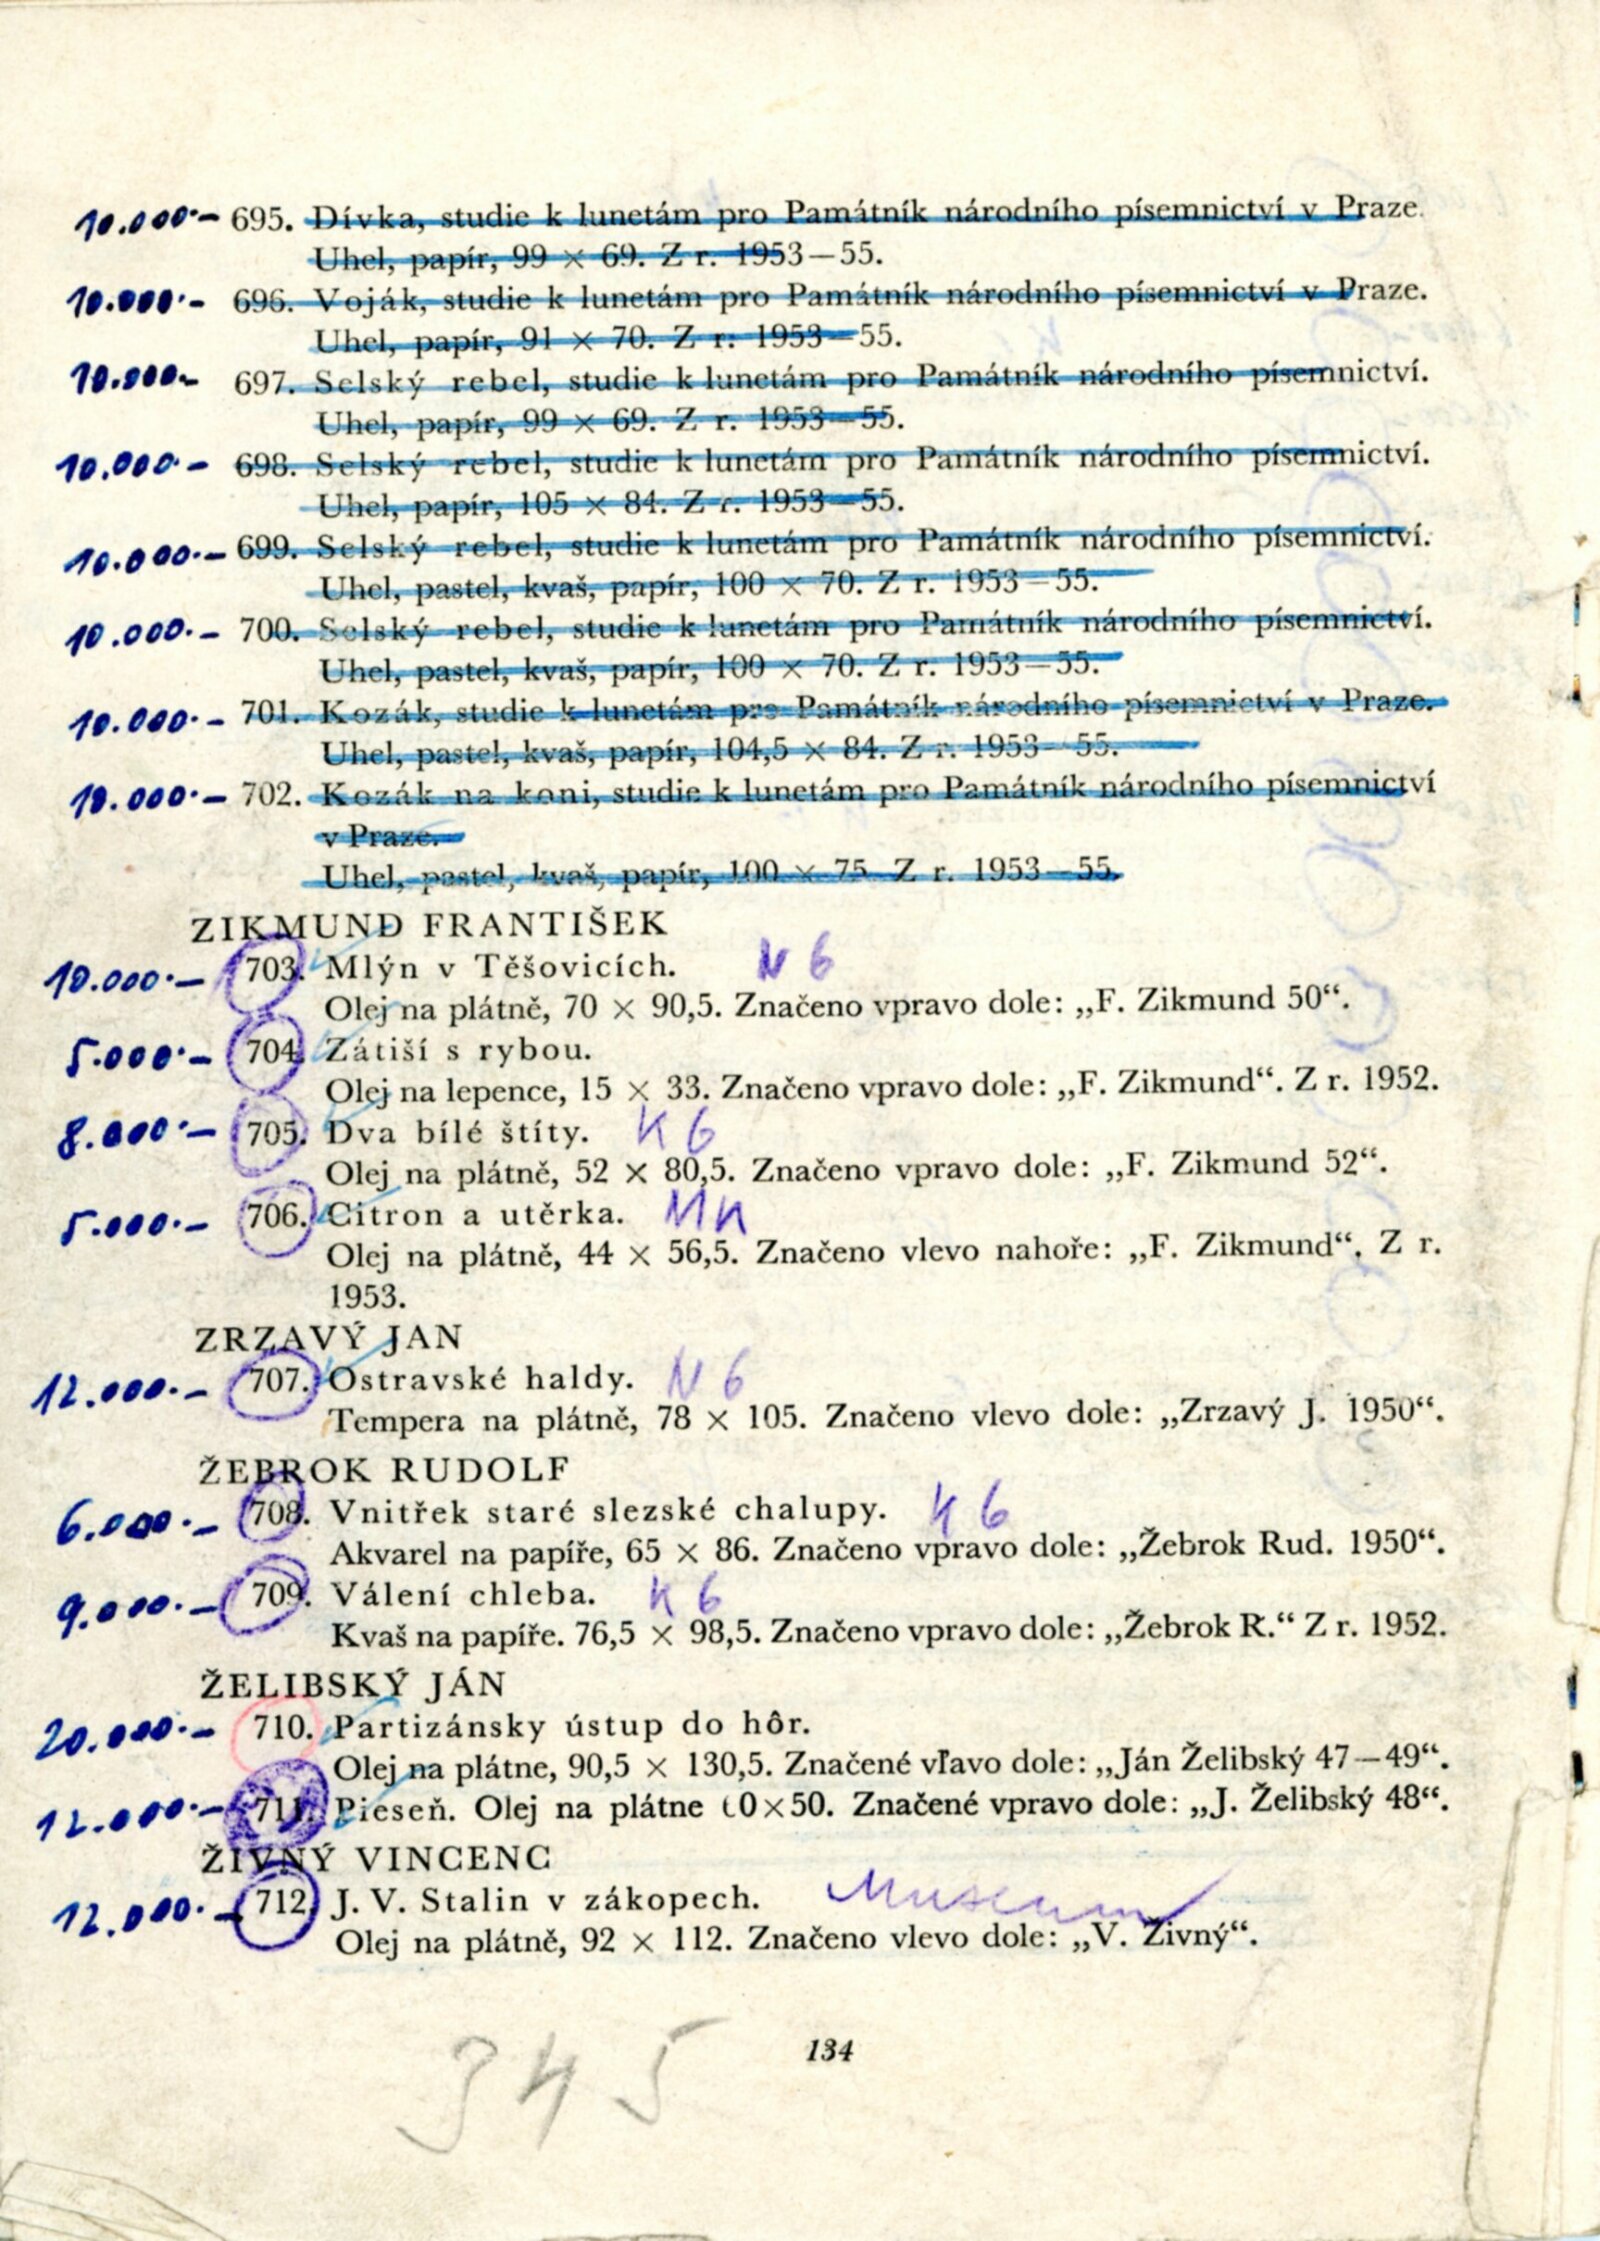 10.000.– 695. Dívka, studie k lunetám pro Památník národního písemnictví v Praze.
Uhel, papír, 99 × 69. Z r. 1953—55.
10.000.– 696. Voják, studie k lunetám pro Památník národního písemnictví v Praze.
Uhel, papír, 91 × 70. Z r. 1953—55.
10.000.– 697. Selský rebel, studie k lunetám pro Památník národního písemnictví.
Uhel, papír, 99 × 69. Z r. 1953—55.
10.000.– 698. Selský rebel, studie k lunetám pro Památník národního písemnictví.
Uhel, papír, 105 × 84. Z r. 1953—55.
10.000.– 699. Selský rebel, studie k lunetám pro Památník národního písemnictví.
Uhel, pastel, kvaš, papír, 100 × 70. Z r. 1953—55.
10.000.– 700. Selský rebel, studie k lunetám pro Památník národního písemnictví.
Uhel, pastel, kvaš, papír, 100 × 70. Z r. 1953—55.
10.000.– 701. Kozák, studie k lunetám pro Památník národního písemnictví v Praze.
Uhel, pastel, kvaš, papír, 104,5 × 84. Z r. 1953—55.
10.000.– 702. Kozák na koni, studie k lunetám pro Památník národního písemnictví
v Praze.
Uhel, pastel, kvaš, papír, 100 × 75. Z r. 1953—55.
ZIKMUND FRANTIŠEK
10.000.– 703. Mlýn v Těšovicích. N 6
Olej na plátně, 70 × 90,5. Značeno vpravo dole: „F. Zikmund 50“.
5.000.– 704. Zátiší s rybou.
Olej na lepence, 15 × 33. Značeno vpravo dole: „F. Zikmund“. Z r. 1952.
8.000.– 705. Dva bílé štíty. K 6
Olej na plátně, 52 × 80,5. Značeno vpravo dole: „F. Zikmund 52“.
5.000.– 706. Citron a utěrka. Mn
Olej na plátně, 44 × 56,5. Značeno vlevo nahoře: „F. Zikmund“. Z r.
1953.
ZRZAVÝ JAN
12.000.– 707. Ostravské haldy. N 6
Tempera na plátně, 78 × 105. Značeno vlevo dole: „Zrzavý J. 1950“.
ŽEBROK RUDOLF
6.000.– 708. Vnitřek staré slezské chalupy. K 6
Akvarel na papíře, 65 × 86. Značeno vpravo dole: „Žebrok Rud. 1950“.
9.000.– 709. Válení chleba. K 6
Kvaš na papíře. 76,5 × 98,5. Značeno vpravo dole: „Žebrok R.“ Z r. 1952.
ŽELIBSKÝ JÁN
20.000.– 710. Partizánsky ústup do hôr.
Olej na plátne, 90,5 × 130,5. Značené vľavo dole: „Ján Želibský 47—49“.
12.000.– 711. Pieseň. Olej na plátne 60×50. Značené vpravo dole: „J. Želibský 48“.
ŽIVNÝ VINCENC
12.000.– 712. J. V. Stalin v zákopech. Museum
Olej na plátně, 92 × 112. Značeno vlevo dole: „V. Živný“.
134
345